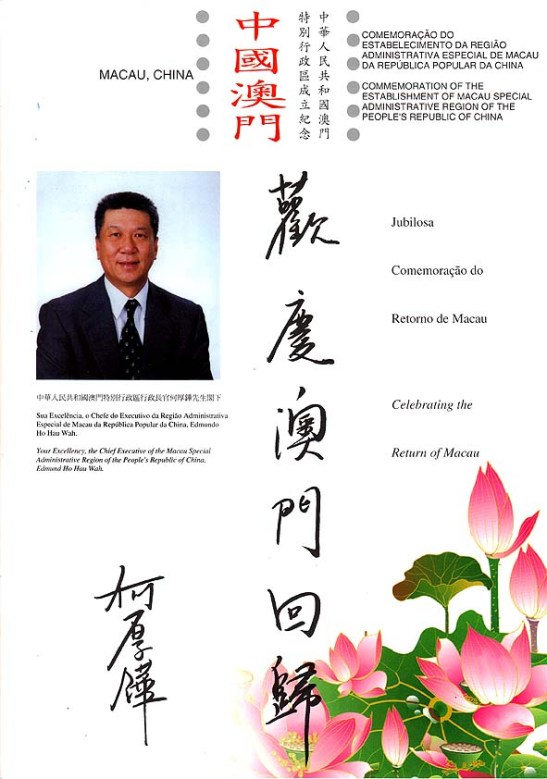 MACAU, CHINA
中國澳門
中華人民共和國澳門
特別行政區成立紀念
COMEMORAÇÃO DO
ESTABELECIMENTO DA REGIÃO
ADMINISTRATIVA ESPECIAL DE MACAU
DA REPÚBLICA POPULAR DA CHINA
COMMEMORATION OF THE
ESTABLISHMENT OF MACAU SPECIAL
ADMINISTRATIVE REGION OF THE
PEOPLE'S REPUBLIC OF CHINA
中華人民共和國澳門特別行政區行政長官何厚鏵先生閣下
Sua Excelência, o Chefe do Executivo da Região Administrativa
Especial de Macau da República Popular da China, Edmundo
Ho Hau Wah.
Your Excellency, the Chief Executive of the Macau Special
Administrative Region of the People's Republic of China,
Edmund Ho Hau Wah.
何厚鏵
歡慶澳門回歸
Jubilosa
Comemoração do
Retorno de Macau
Celebrating the
Return of Macau